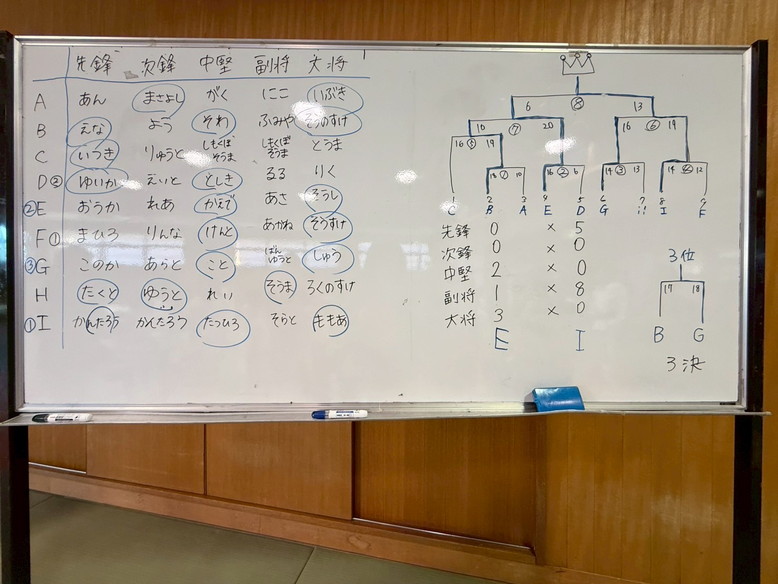 先鋒 次鋒 中堅 副将 大将
A あん まさよし がく にこ いぶき
B えな よう そわ ふみや そうのすけ
C いつき りゅうと しもくぼそうま しもくぼそうま とうま
D② ゆいか えいと としき るる りく
②E おうか れあ かえで あさ そうし
F① まひろ りんな けんと あかね そうすけ
③G このか あらと こと ばんゆうと しゅう
H たくと ゆうと れい そうま ろくのすけ
①I かんたろう かんたろう たつひろ そらと ももあ
6 ⑧ 13
10 ⑦ 20 16 ⑥ 19
16 ⑤ 19
18 ① 10 16 ② 6 14 ③ 13 14 ④ 12
1 2 3 4 5 6 7 8 9
C B A E D G H I F
先鋒 0 × 5
次鋒 0 × 0
中堅 2 × 0
副将 1 × 8
大将 3 × 0
E I
3位
17 18
B G
3決